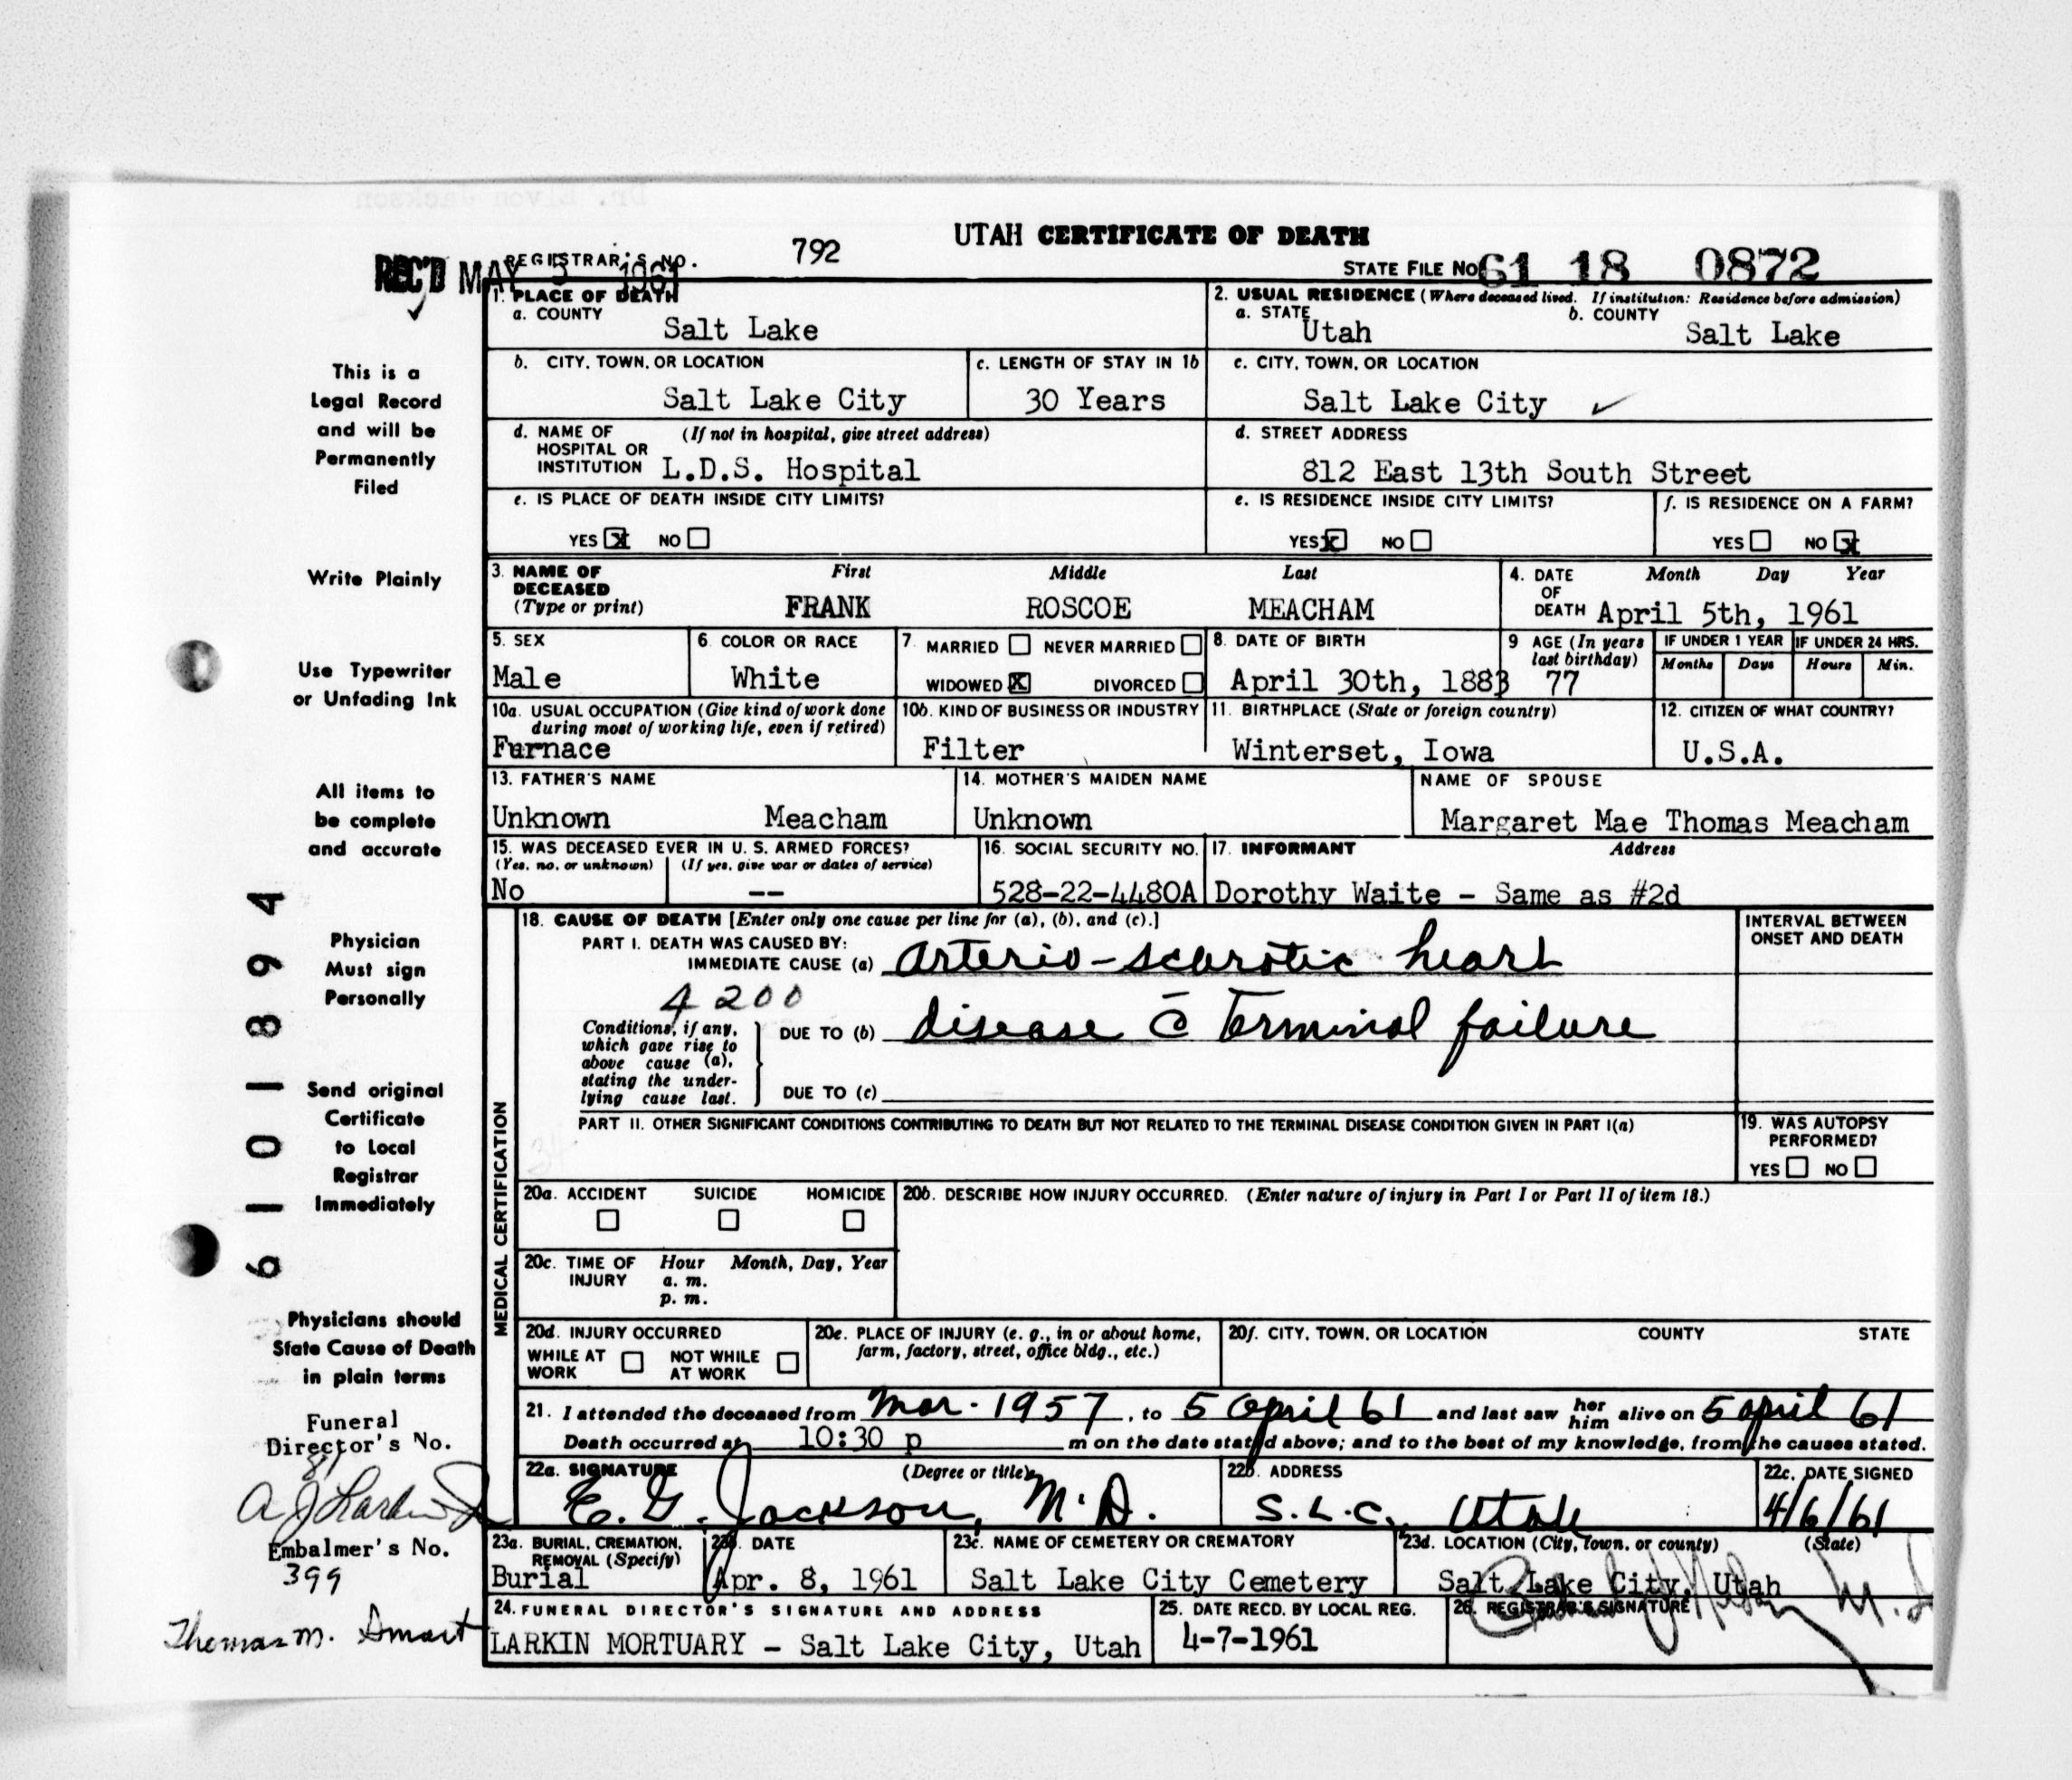 UTAH CERTIFICATE OF DEATH
REGISTRAR'S NO. 792
REC'D MAY 1961
STATE FILE NO. 61 18 0872
1. PLACE OF DEATH
a. COUNTY
Salt Lake
2. USUAL RESIDENCE (Where deceased lived. If institution: Residence before admission)
a. STATE Utah b. COUNTY Salt Lake
b. CITY, TOWN, OR LOCATION
Salt Lake City
c. LENGTH OF STAY IN 1b
30 Years
c. CITY, TOWN, OR LOCATION
Salt Lake City
d. NAME OF HOSPITAL OR INSTITUTION (If not in hospital, give street address)
L.D.S. Hospital
d. STREET ADDRESS
812 East 13th South Street
e. IS PLACE OF DEATH INSIDE CITY LIMITS?
YES X NO
e. IS RESIDENCE INSIDE CITY LIMITS?
YES X NO
f. IS RESIDENCE ON A FARM?
YES NO X
3. NAME OF DECEASED (Type or print)
First Middle Last
FRANK ROSCOE MEACHAM
4. DATE OF DEATH Month Day Year
April 5th, 1961
5. SEX
Male
6. COLOR OR RACE
White
7. MARRIED NEVER MARRIED
WIDOWED X DIVORCED
8. DATE OF BIRTH
April 30th, 1883
9 AGE (In years last birthday)
77
IF UNDER 1 YEAR
Months Days
IF UNDER 24 HRS.
Hours Min.
10a. USUAL OCCUPATION (Give kind of work done during most of working life, even if retired)
Furnace
10b. KIND OF BUSINESS OR INDUSTRY
Filter
11. BIRTHPLACE (State or foreign country)
Winterset, Iowa
12. CITIZEN OF WHAT COUNTRY?
U.S.A.
13. FATHER'S NAME
Unknown Meacham
14. MOTHER'S MAIDEN NAME
Unknown
NAME OF SPOUSE
Margaret Mae Thomas Meacham
15. WAS DECEASED EVER IN U. S. ARMED FORCES?
(Yes, no, or unknown) (If yes, give war or dates of service)
No --
16. SOCIAL SECURITY NO.
528-22-4480A
17. INFORMANT Address
Dorothy Waite - Same as #2d
MEDICAL CERTIFICATION
18. CAUSE OF DEATH [Enter only one cause per line for (a), (b), and (c).]
PART I. DEATH WAS CAUSED BY:
IMMEDIATE CAUSE (a) arterio-sclerotic heart
4200
Conditions, if any, which gave rise to above cause (a), stating the underlying cause last.
DUE TO (b) disease c̄ Terminal failure
DUE TO (c)
INTERVAL BETWEEN ONSET AND DEATH
PART II. OTHER SIGNIFICANT CONDITIONS CONTRIBUTING TO DEATH BUT NOT RELATED TO THE TERMINAL DISEASE CONDITION GIVEN IN PART I(a)
19. WAS AUTOPSY PERFORMED?
YES NO
20a. ACCIDENT SUICIDE HOMICIDE
20b. DESCRIBE HOW INJURY OCCURRED. (Enter nature of injury in Part I or Part II of item 18.)
20c. TIME OF INJURY Hour Month, Day, Year
a. m.
p. m.
20d. INJURY OCCURRED
WHILE AT WORK NOT WHILE AT WORK
20e. PLACE OF INJURY (e. g., in or about home, farm, factory, street, office bldg., etc.)
20f. CITY, TOWN, OR LOCATION COUNTY STATE
21. I attended the deceased from Mar. 1957, to 5 April 61 and last saw her him alive on 5 april 61
Death occurred at 10:30 p m on the date stated above; and to the best of my knowledge, from the causes stated.
22a. SIGNATURE (Degree or title)
E. G. Jackson, M.D.
22b. ADDRESS
S.L.C., Utah
22c. DATE SIGNED
4/6/61
23a. BURIAL, CREMATION, REMOVAL (Specify)
Burial
23b. DATE
Apr. 8, 1961
23c. NAME OF CEMETERY OR CREMATORY
Salt Lake City Cemetery
23d. LOCATION (City, town, or county) (State)
Salt Lake City, Utah
24. FUNERAL DIRECTOR'S SIGNATURE AND ADDRESS
LARKIN MORTUARY - Salt Lake City, Utah
25. DATE RECD. BY LOCAL REG.
4-7-1961
26. REGISTRAR'S SIGNATURE
This is a
Legal Record
and will be
Permanently
Filed
Write Plainly
Use Typewriter
or Unfading Ink
All items to
be complete
and accurate
Physician
Must sign
Personally
Send original
Certificate
to Local
Registrar
Immediately
Physicians should
State Cause of Death
in plain terms
Funeral
Director's No.
81
A J Larkin Jr
Embalmer's No.
399
Thomas M. Smart
61 01894